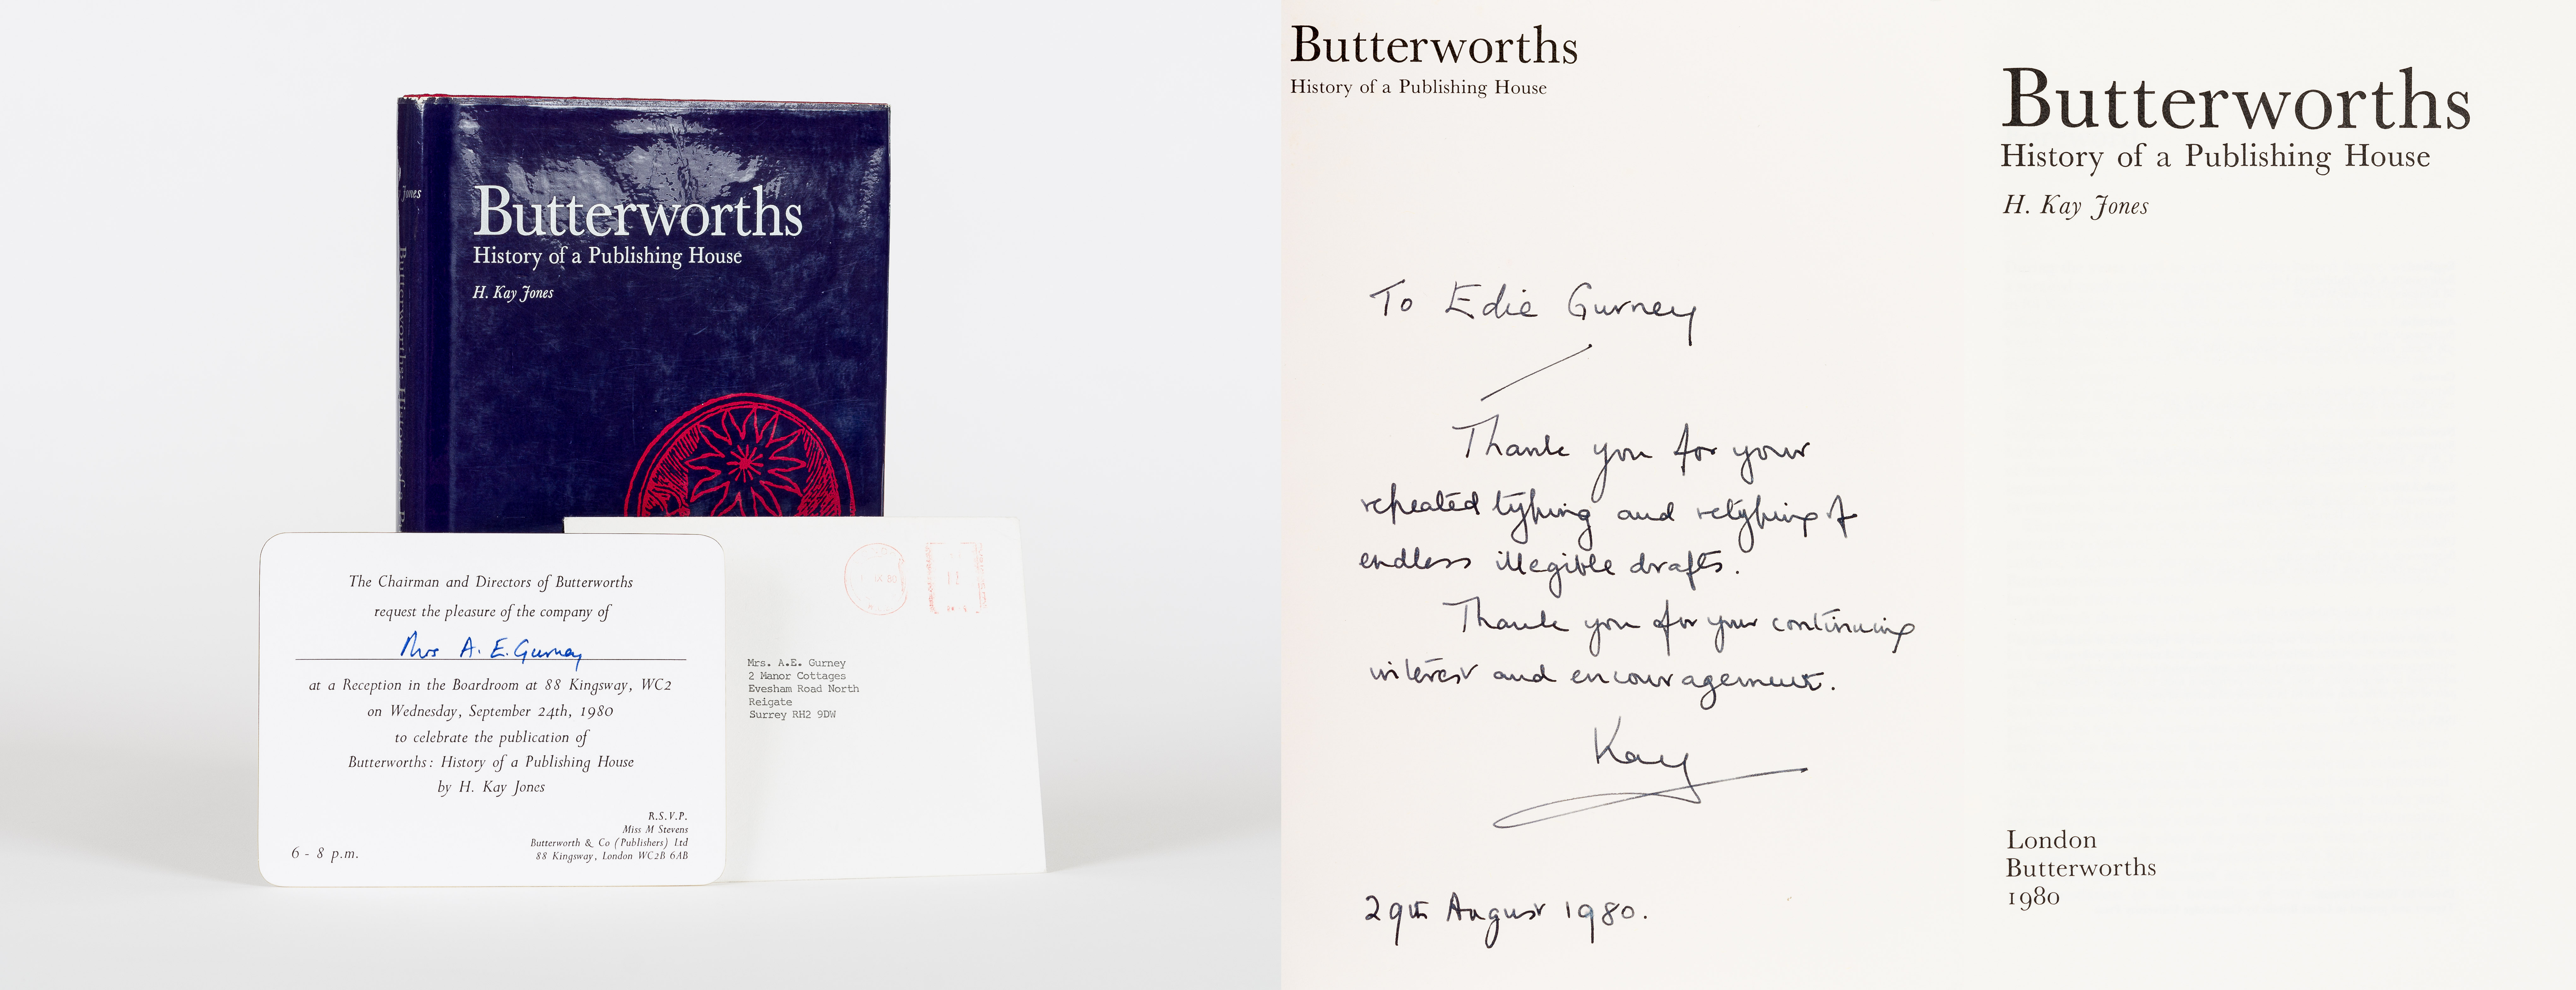 Jones
Butterworths: History of a P
Butterworths
History of a Publishing House
H. Kay Jones
The Chairman and Directors of Butterworths
request the pleasure of the company of
Mrs A. E. Gurney
at a Reception in the Boardroom at 88 Kingsway, WC2
on Wednesday, September 24th, 1980
to celebrate the publication of
Butterworths: History of a Publishing House
by H. Kay Jones
R.S.V.P.
Miss M Stevens
Butterworth & Co (Publishers) Ltd
88 Kingsway, London WC2B 6AB
6 - 8 p.m.
80
Mrs. A.E. Gurney
2 Manor Cottages
Evesham Road North
Reigate
Surrey RH2 9DW
Butterworths
History of a Publishing House
To Edie Gurney
Thank you for your
repeated typing and retyping of
endless illegible drafts.
Thank you for your continuing
interest and encouragement.
Kay
29th August 1980.
Butterworths
History of a Publishing House
H. Kay Jones
London
Butterworths
1980